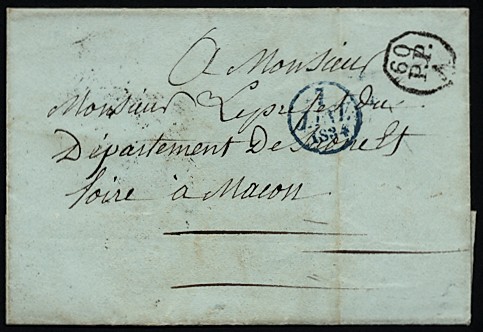 A Monsieur
Monsieur Le préfet du
Département De Saone Et
Loire à Macon
60
P.P.
7
1834